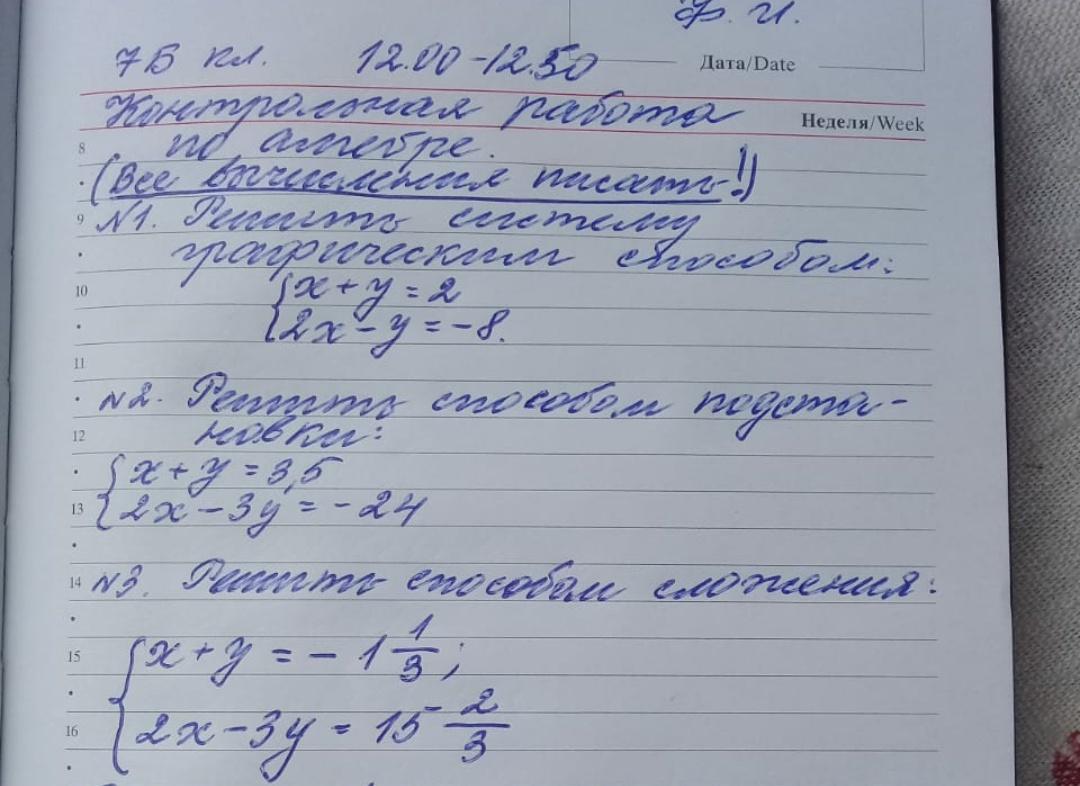 Ф. И.
7Б кл. 12.00-12.50
Дата/Date
Контрольная работа
Неделя/Week
8 по алгебре.
(Все вычисления писать!)
9 №1. Решить систему
графическим способом:
10 {x+y=2
{2x-y=-8.
11
№2. Решить способом подста-
12 новки:
{x+y=3,5
13 {2x-3y=-24
14 №3. Решить способом сложения:
15 {x+y=-1 1/3;
16 {2x-3y=15 2/3